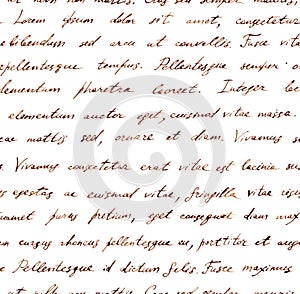 Lorem ipsum dolor sit amet, consectetur
bibendum sed arcu ut convallis. Fusce vita
pellentesque tempus. Pellentesque semper
elementum pharetra laoreet. Integer lac
elementum auctor eget, euismod vitae massa.
mattis sed, ornare et diam. Vivamus su
s. Vivamus consectetur erat vitae est lacinia su
us egestas ac euismod vitae, fringilla vitae risus
amet purus pretium, eget consequat diam max
n cursus rhoncus pellentesque eu, porttitor et augu
Pellentesque id dictum felis. Fusce maximus